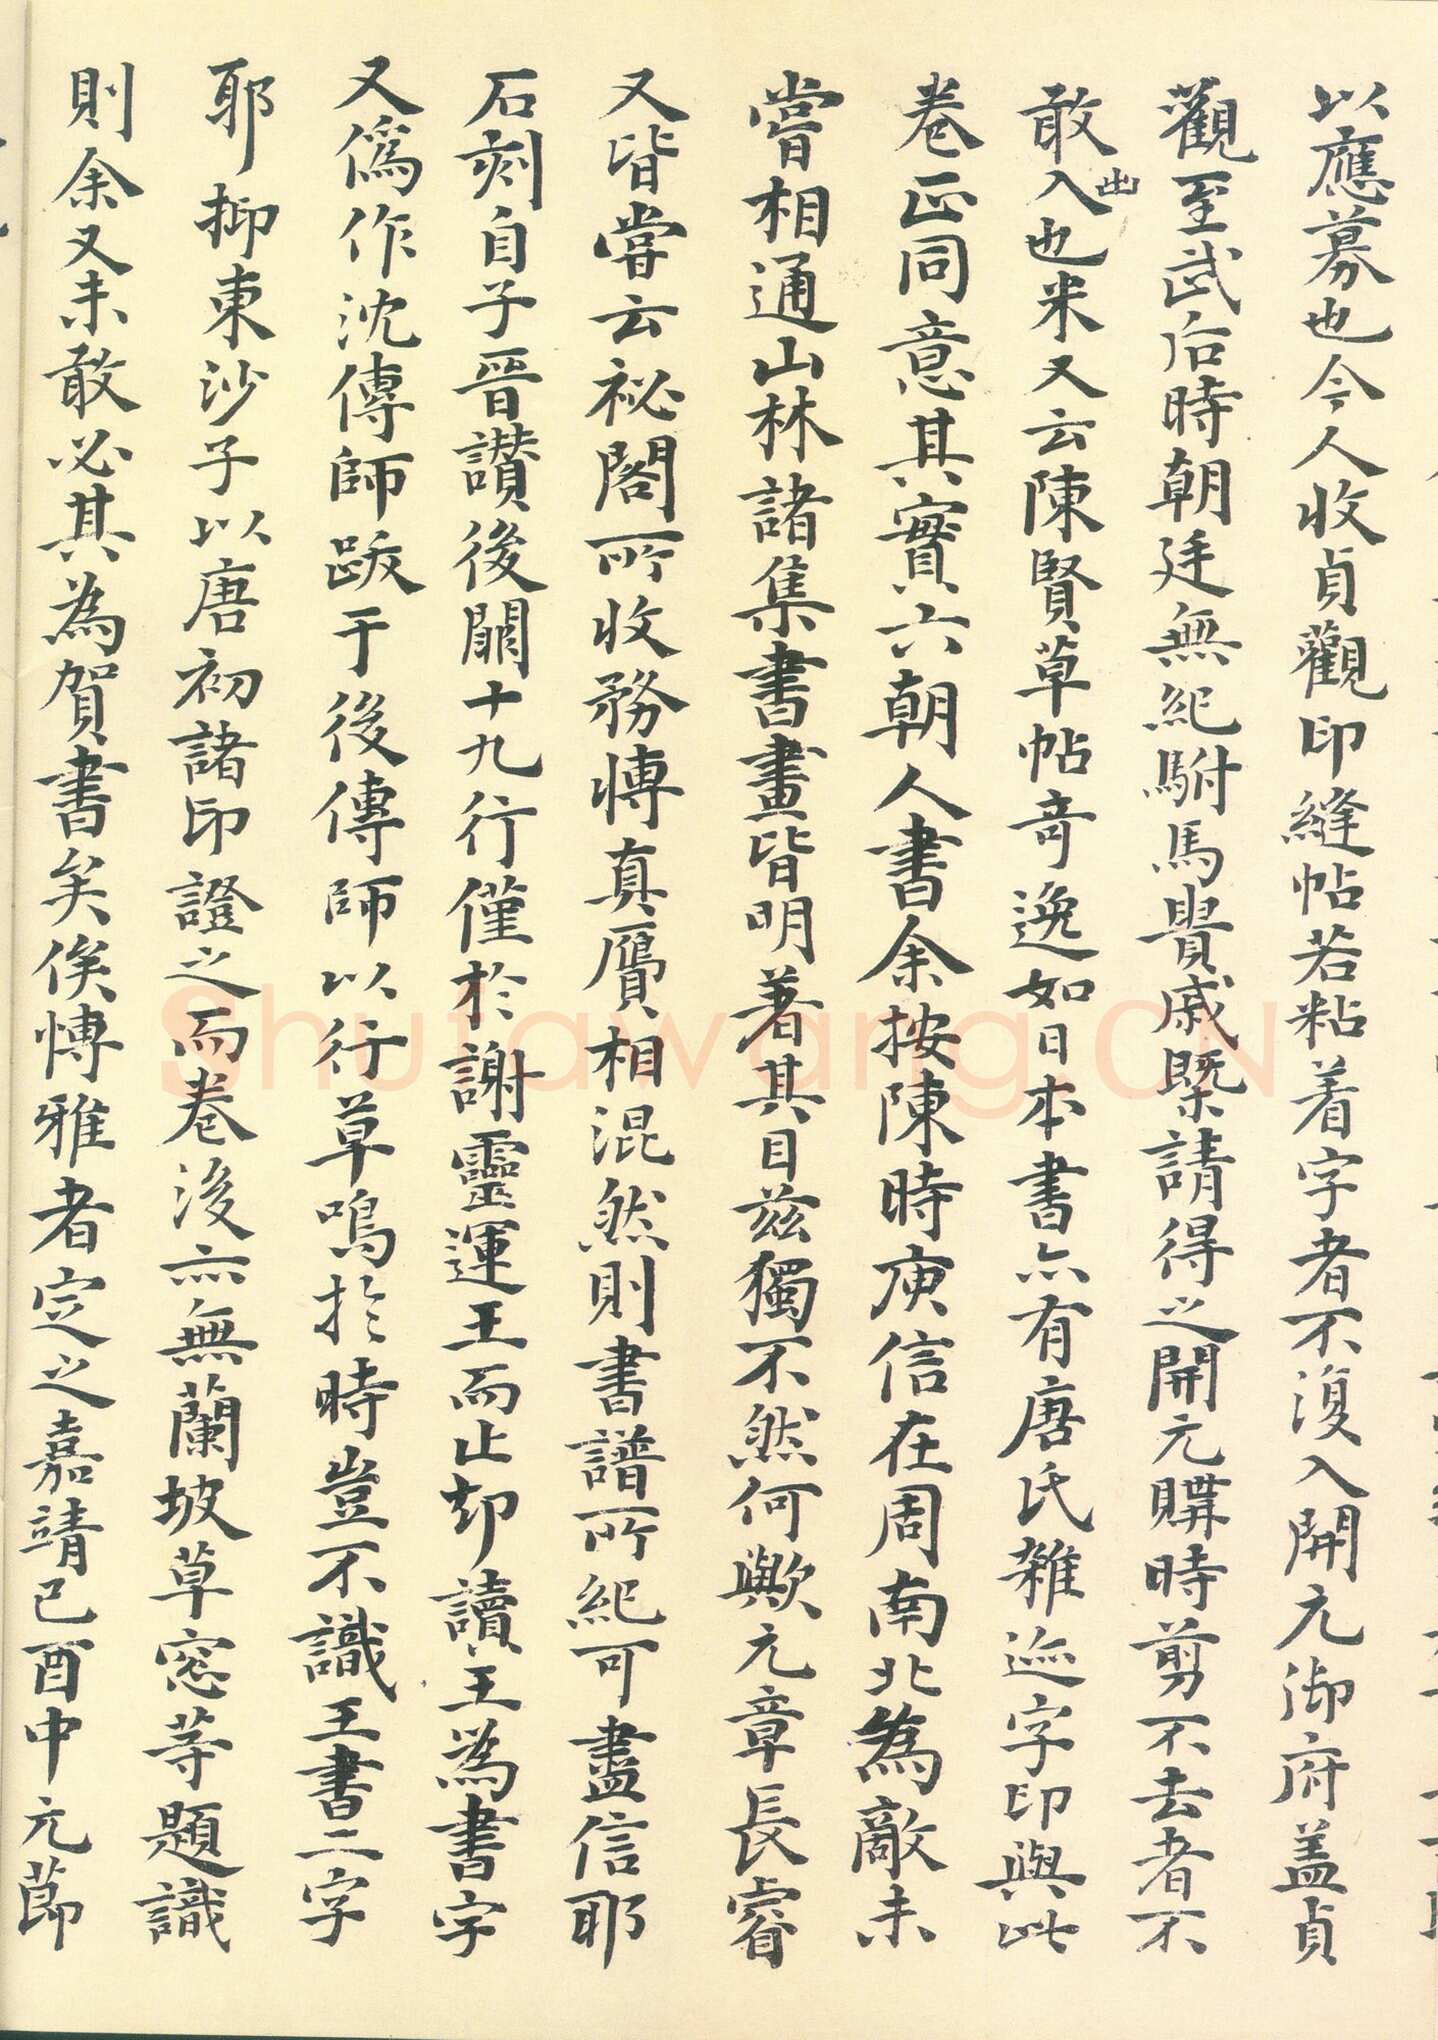 以應募也今人收貞觀印縫帖若粘着字者不復入開元御府盖貞
觀至武后時朝廷無紀駙馬貴戚暨請得之開元購時剪不去者不
敢出入也米又云陳賢草帖奇逸如日本書亦有唐氏雜迹字印與此
卷正同意其實六朝人書余按陳時庾信在周南北為敵未
嘗相通山林諸集書畫皆明著其目茲獨不然何歟元章長睿
又皆嘗云祕閣所收務博真贋相混然則書譜所紀可盡信耶
石刻自子晉讚後闕十九行僅於謝靈運王而止却讀王為書字
又偽作沈傳師跋于後傳師以行草鳴於時豈不識王書二字
耶抑東沙子以唐初諸印證之而卷後亦無蘭坡草窓等題識
則余又未敢必其為賀書矣俟博雅者定之嘉靖己酉中元節
Shufawang.CN